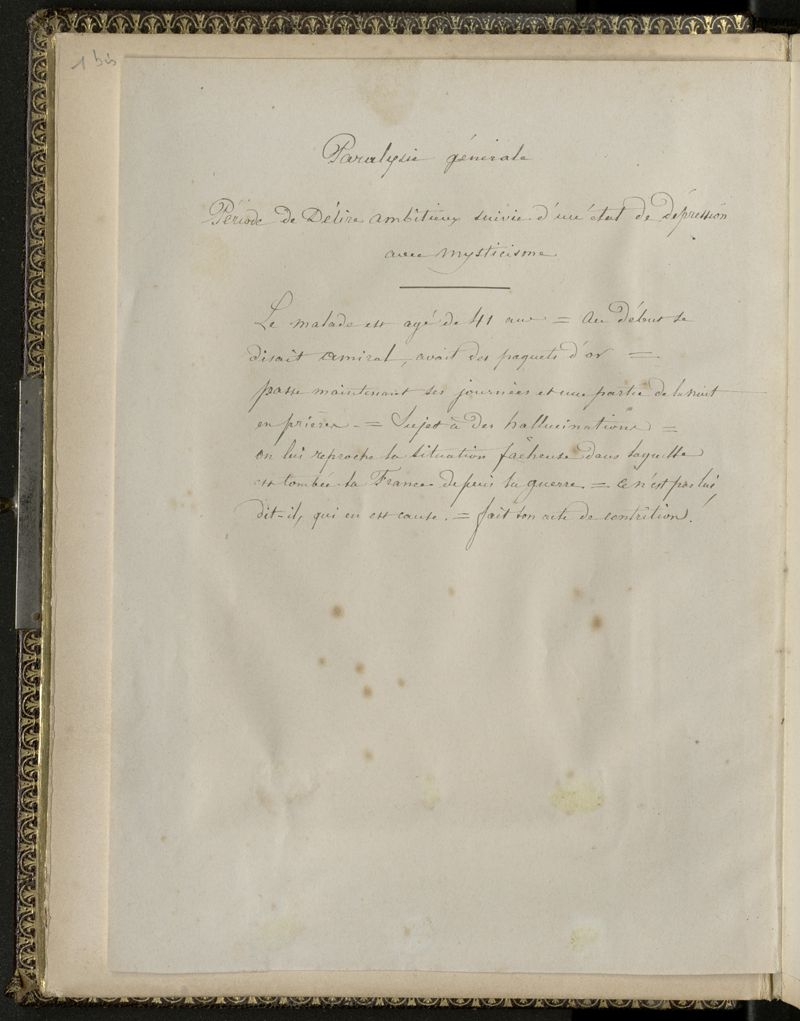 1 bis
Paralysie générale
Période de Délire ambitieux suivie d'un état de dépression
avec mysticisme
Le malade est agé de 41 ans = Au début se
disait amiral, avait des paquets d'or =
passe maintenant ses journées et une partie de la nuit
en prières. = Sujet à des hallucinations =
on lui reproche la situation fâcheuse dans laquelle
est tombée la France depuis la guerre. = ce n'est pas lui,
dit-il, qui en est cause. = fait son acte de contrition.